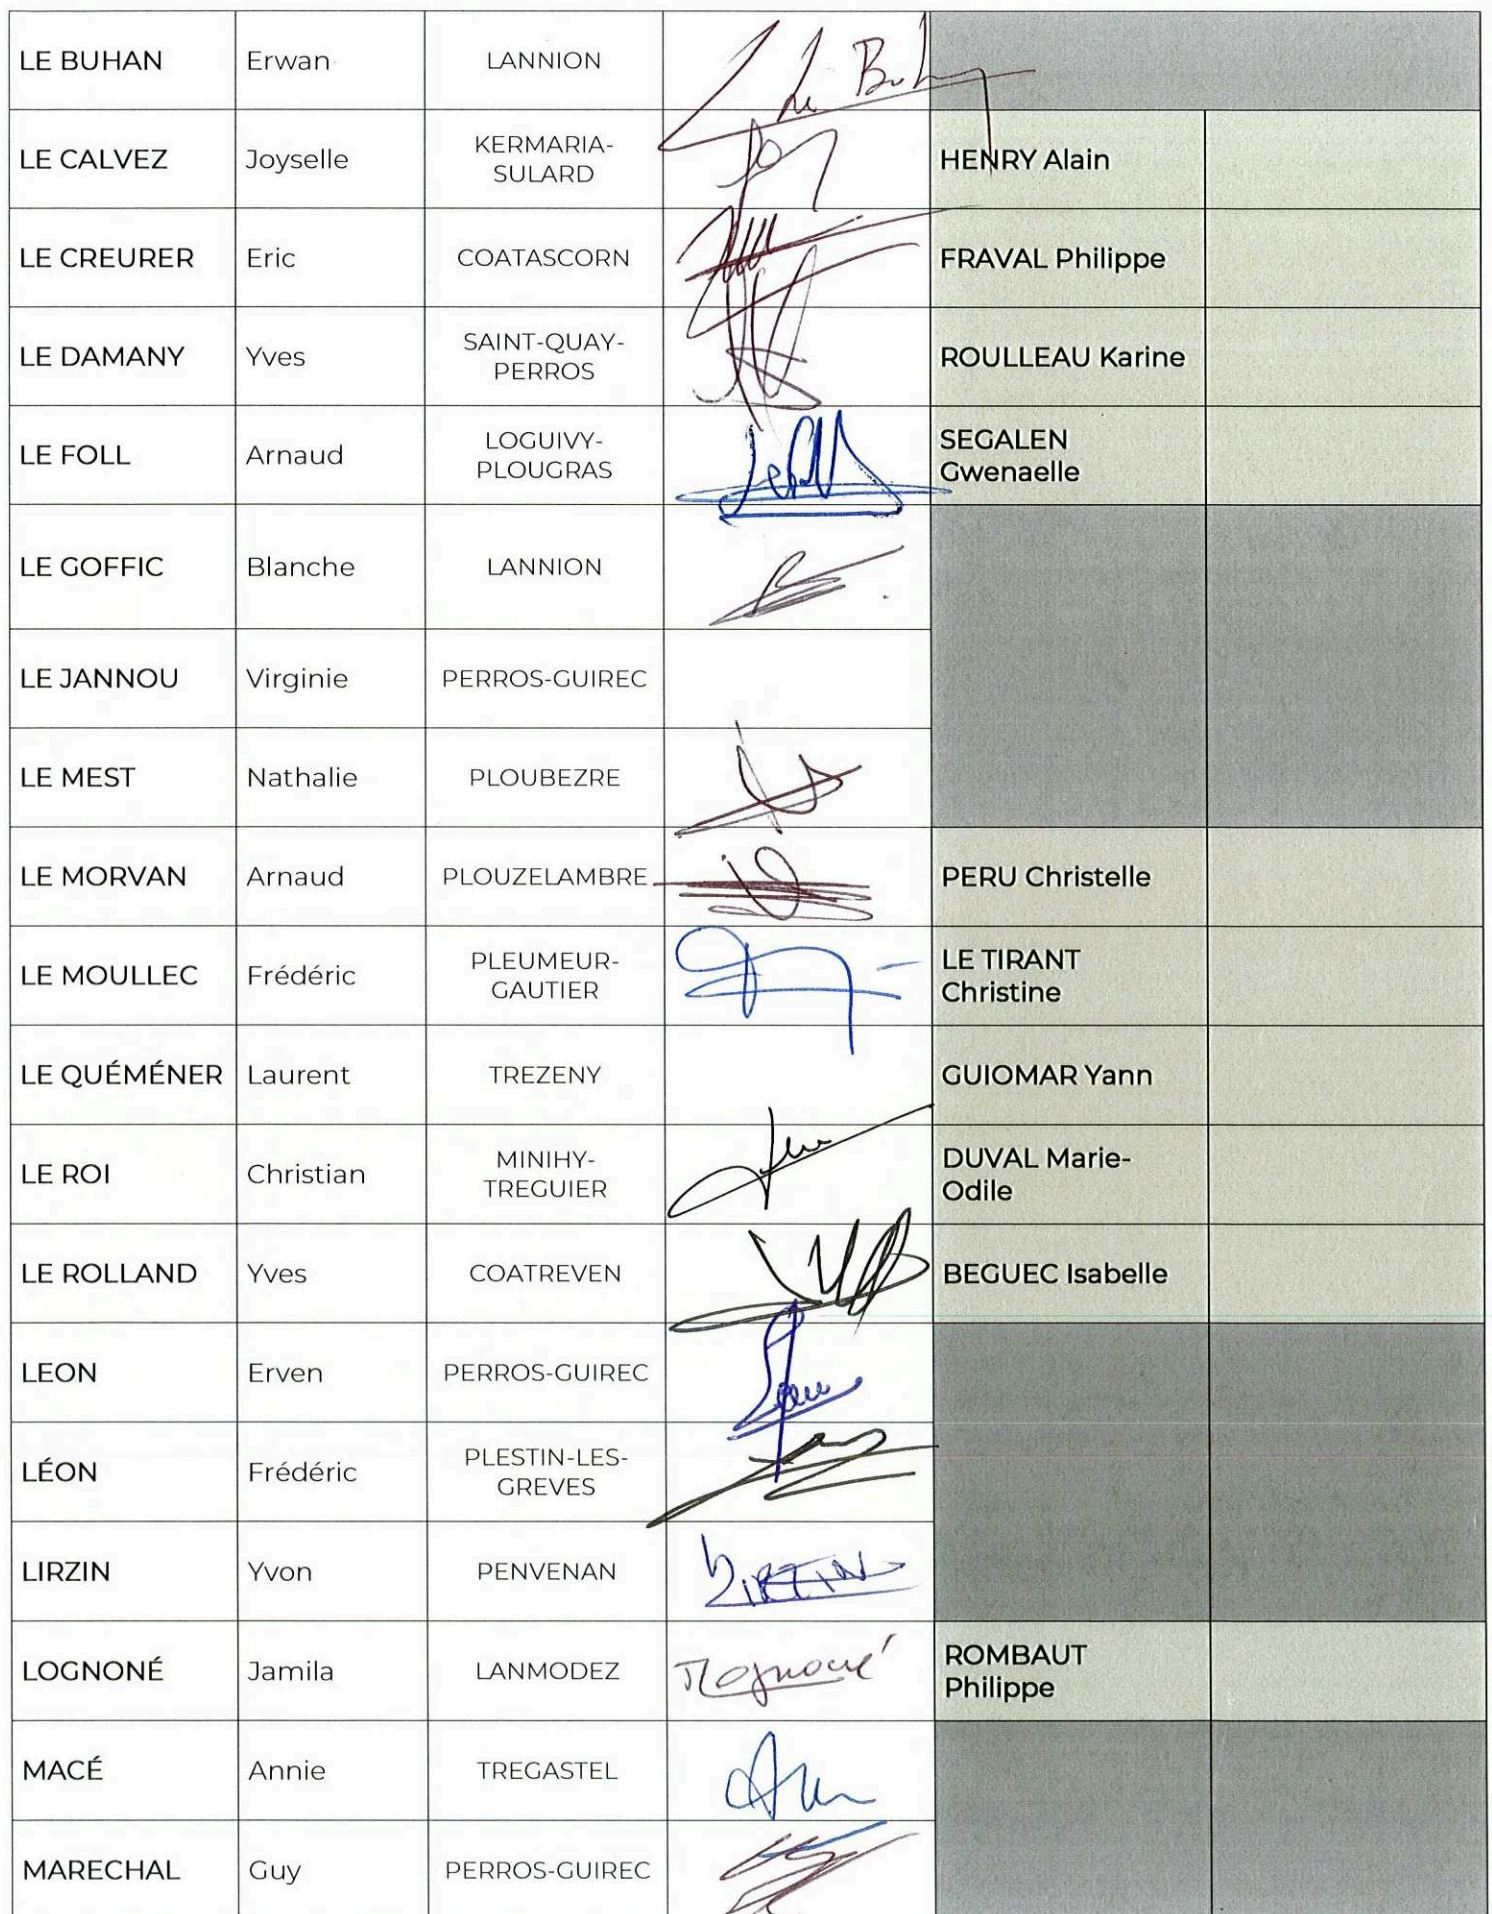 LE BUHAN Erwan LANNION Le Buh
LE CALVEZ Joyselle KERMARIA-
SULARD HENRY Alain
LE CREURER Eric COATASCORN FRAVAL Philippe
LE DAMANY Yves SAINT-QUAY-
PERROS ROULLEAU Karine
LE FOLL Arnaud LOGUIVY-
PLOUGRAS SEGALEN
Gwenaelle
LE GOFFIC Blanche LANNION
LE JANNOU Virginie PERROS-GUIREC
LE MEST Nathalie PLOUBEZRE
LE MORVAN Arnaud PLOUZELAMBRE PERU Christelle
LE MOULLEC Frédéric PLEUMEUR-
GAUTIER LE TIRANT
Christine
LE QUÉMÉNER Laurent TREZENY GUIOMAR Yann
LE ROI Christian MINIHY-
TREGUIER DUVAL Marie-
Odile
LE ROLLAND Yves COATREVEN BEGUEC Isabelle
LEON Erven PERROS-GUIREC
LÉON Frédéric PLESTIN-LES-
GREVES
LIRZIN Yvon PENVENAN LIRZIN
LOGNONÉ Jamila LANMODEZ ROMBAUT
Philippe
MACÉ Annie TREGASTEL
MARECHAL Guy PERROS-GUIREC